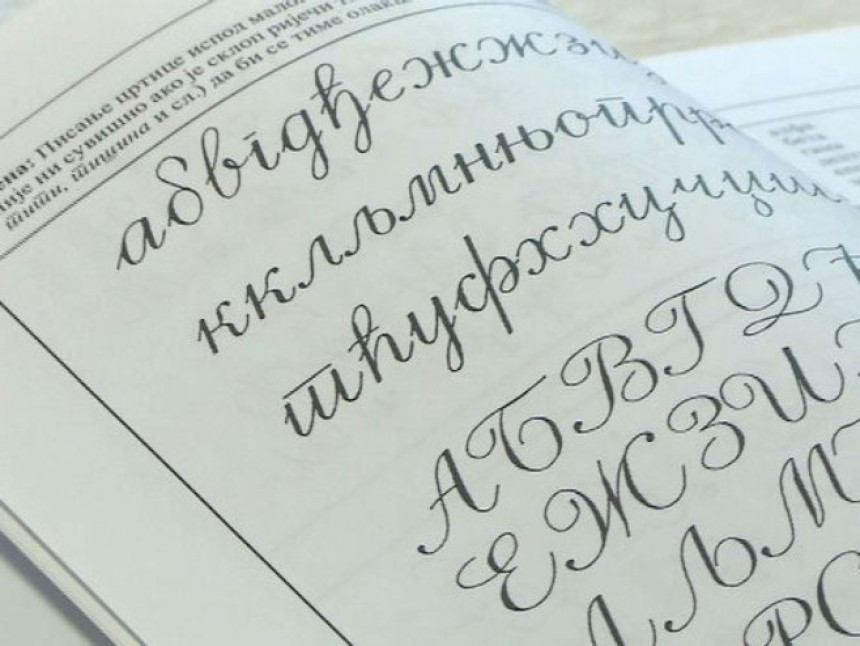 Писање цртице испод мало
није ни сувишно ако је склоп ријечи
тити, тишина и сл.) да би се тиме олак
абвгдђежжз
кклљмнњоп
тћуфхххцчџш
АБВГД
ЕЖЗИ
ЛЉМ
РС